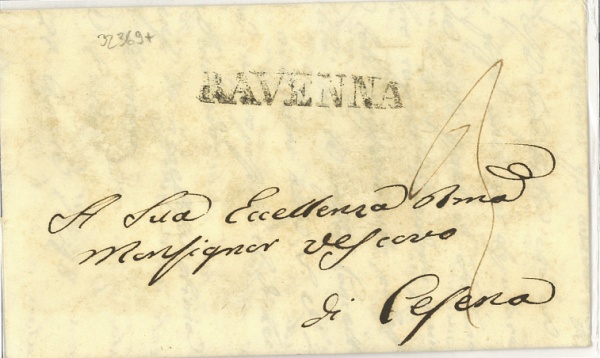 32369+
RAVENNA
A Sua Eccellenza Rma
Monsignor Vescovo
di Cesena